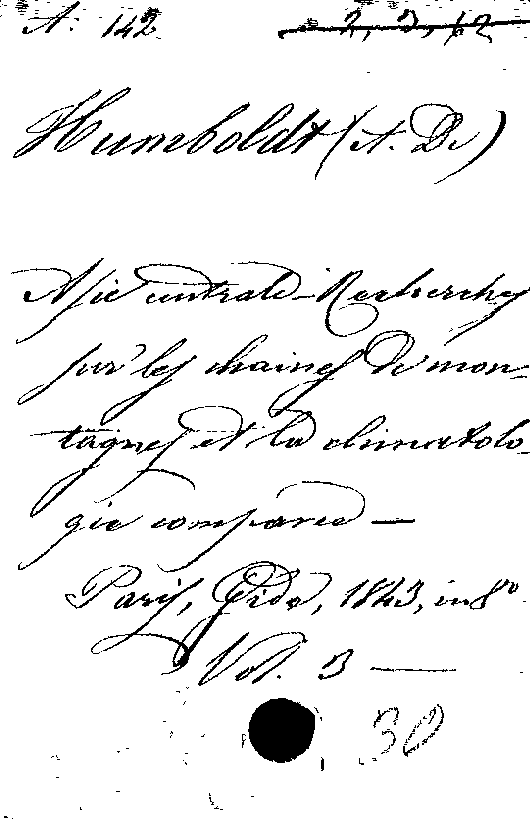 A. 142 2, 3, 12
Humboldt (A. De)
Asie centrale - Recherches
sur les chaines de mon-
tagnes et la climatolo-
gie comparée —
Paris, Gide, 1843, in 8º
Vol. 3 —
30